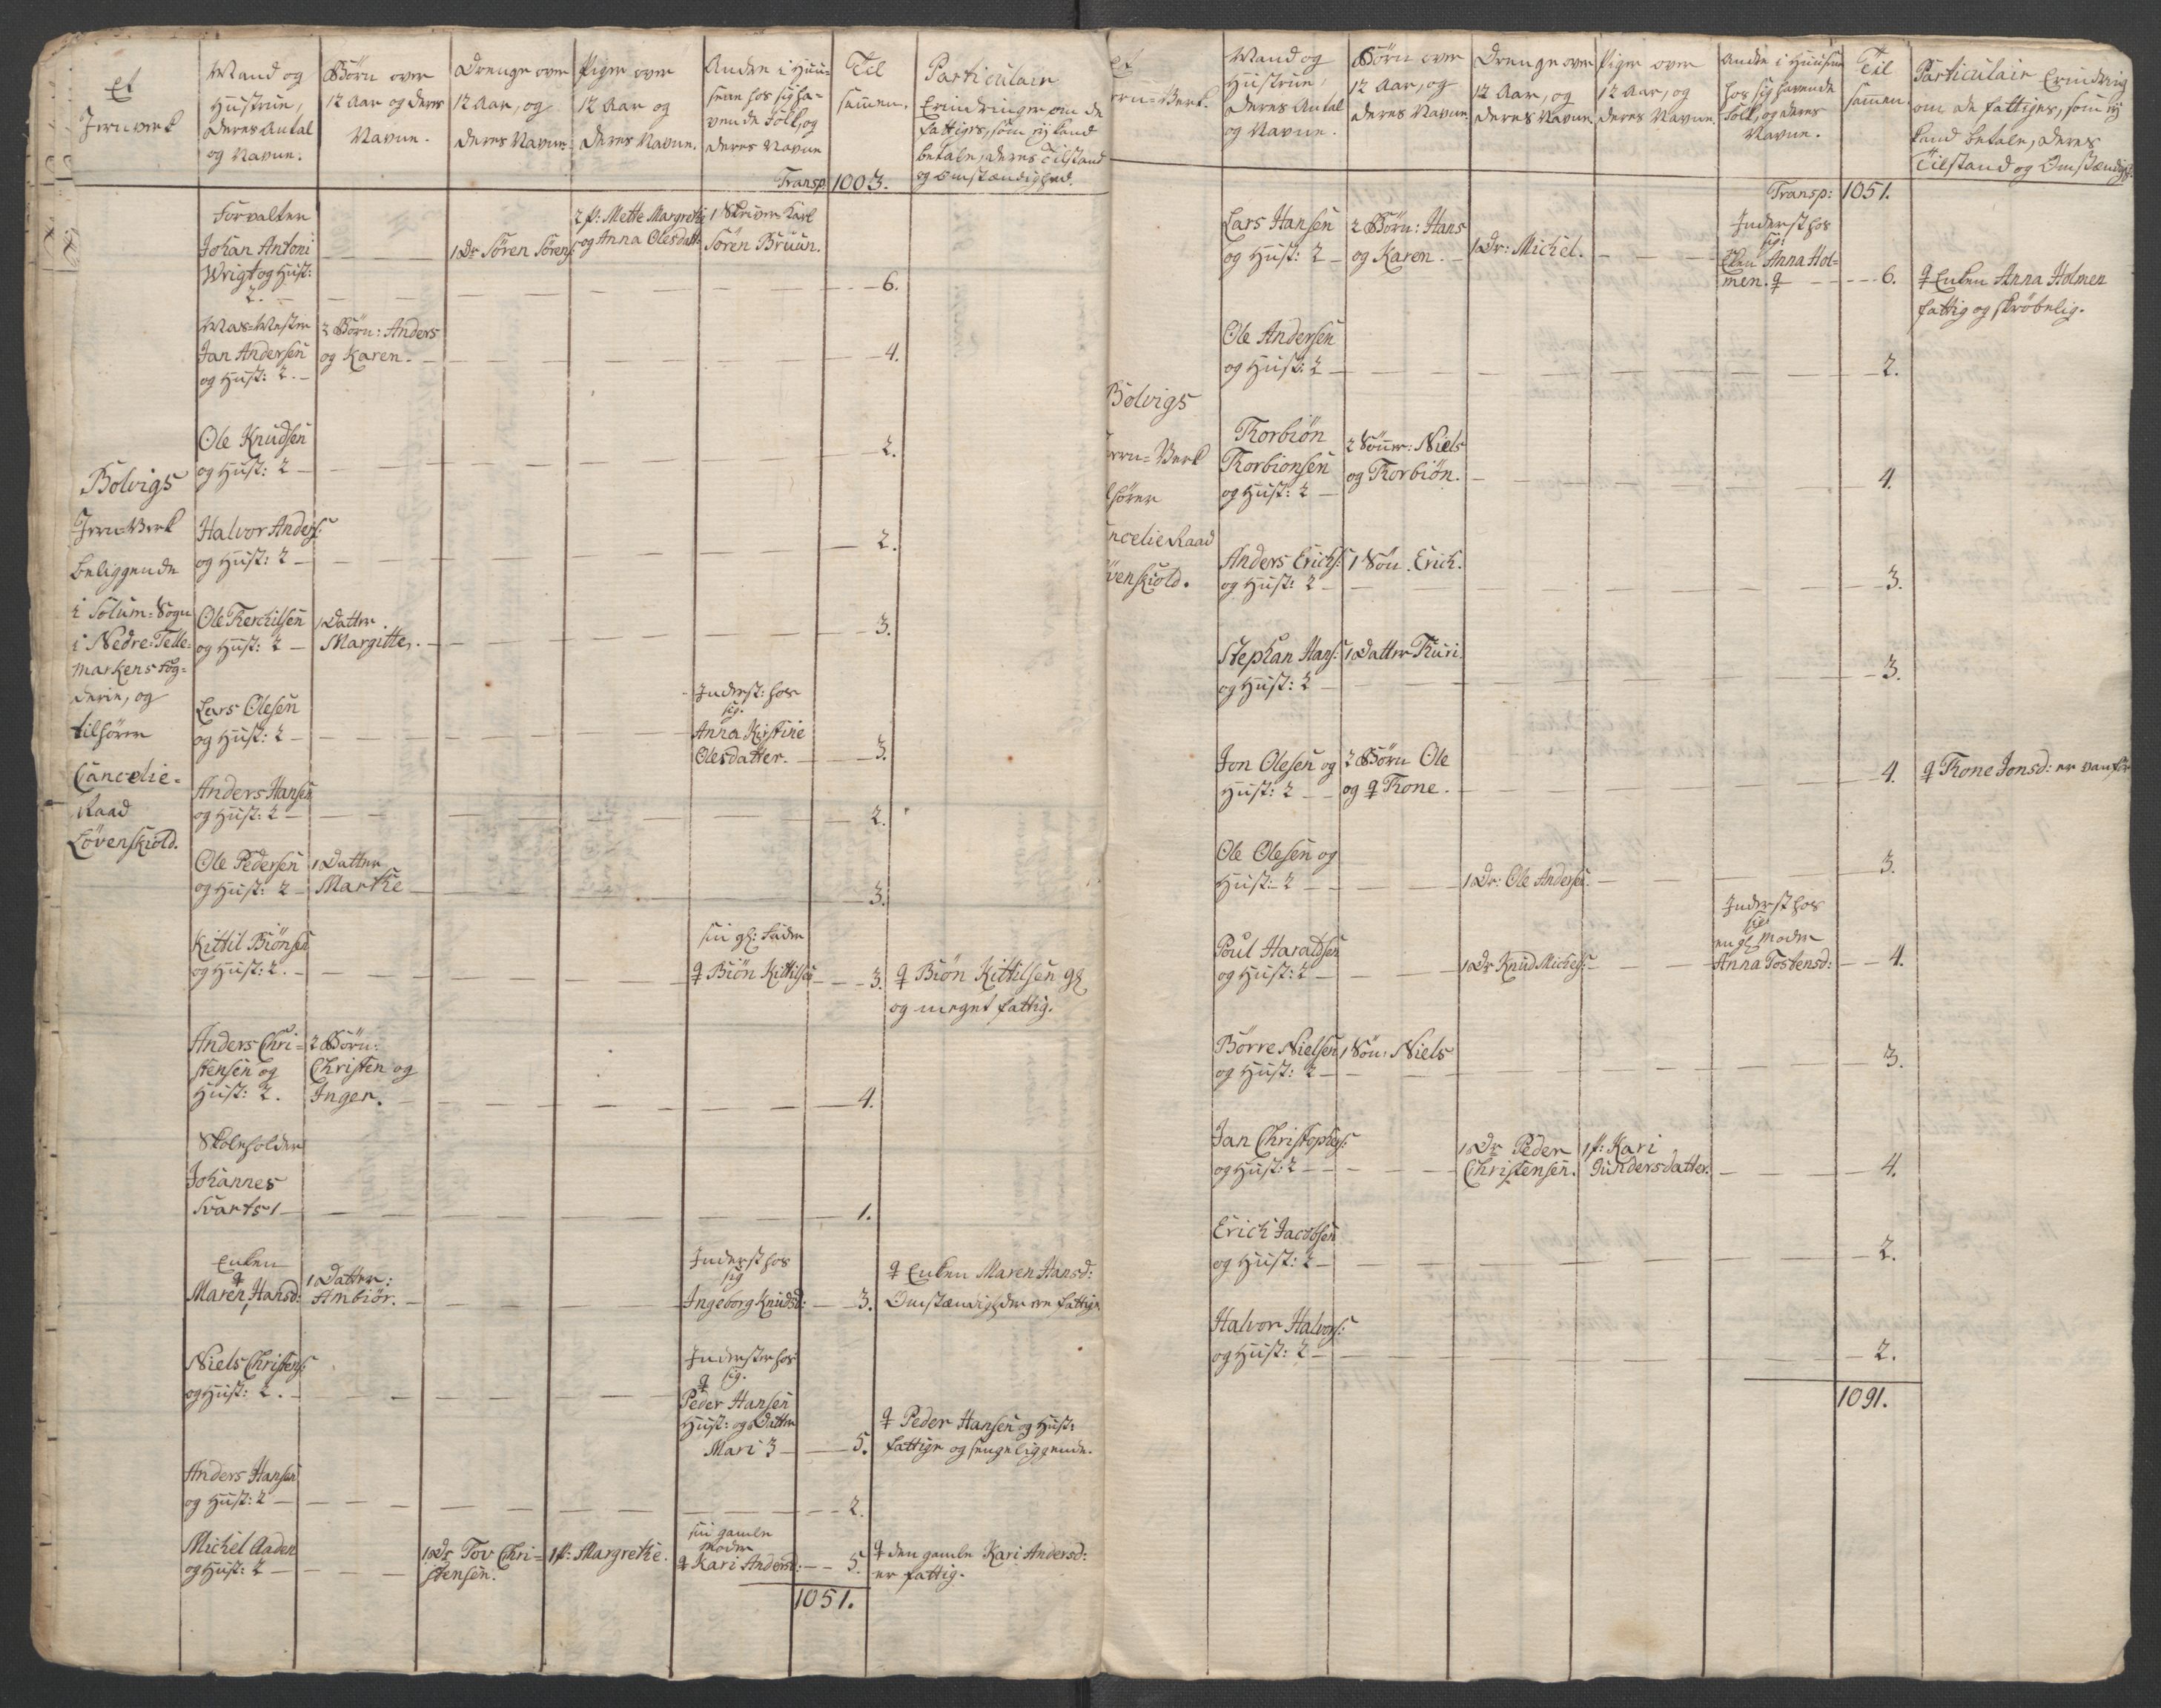 Et
Jernverk
Mand og
Hustrue,
deres Antal
og Navne.
Børn over
12 Aar og deres
Navne.
Drenge over
12 Aar, og
deres Navne.
Piger over
12 Aar og
deres Navne.
Andre i Huu-
sene hos sig ha-
vende Folk, og
deres Navne
Til
sammen.
Particulair
Erindringer om de
fattiges, som ej kand
betale, deres Tilstand
og Omstændighed.
Transp: 1003.
Bolvigs
Jern=Verk
beliggende
i Solum=Sogn
i Nedre=Telle=
markens Fog=
derie, og
tilhører
Cancelie=
Raad
Løvenskiold.
Forvalter
Johan Antoni
Wrigt og Hust:
2.
1 Dr: Søren Sørens:
2 P: Mette Margrethe
og Anna Olesdatt:
1 Skriver Karl
Søren Bruun.
6.
Mas=Mester
Jan Andersen
og Hust: 2.
2 Børn: Anders
og Karen.
4.
Ole Knudsen
og Hust: 2
2.
Halvor Anders:
og Hust: 2
2.
Ole Terchilsen
og Hust: 2
1 Datter
Margitte.
3.
Lars Olesen
og Hust: 2
Inderst: hos
sig.
Anna Kirstine
Olesdatter.
3.
Anders Hansen
og Hust: 2
2.
Ole Pedersen
og Hust: 2
1 Datter
Marthe
3.
Kittil Biønsen
og Hust: 2.
sin gl: Fader
♀ Biøn Kittilsen
3.
♀ Biøn Kittilsen gl
og meget fattig.
Anders Chri=
stensen og
Hust: 2.
2 Børn:
Christen og
Inger.
4.
Skoleholder
Johannes
Svarts 1
1.
Enken
♀
Maren Hansd:
1 Datter:
Ambiør.
Inderst hos
sig
Ingeborg Knudsd:
3.
♀ Enken Maren Hansd:
Omstændigheder ere fattige
Niels Christens:
og Hust: 2.
Inderster hos
♀ sig.
Peder Hansen
Hust: og Datter
Mari 3
5.
♀ Peder Hansen og Hust:
fattige og sengeliggende.
Anders Hansen
og Hust: 2
2.
Michel Aaden
og Hust: 2
1 Dr: Tov Chri=
stensen.
1 P: Margrethe.
sin gamle
Moder
♀ Kari Andersd:
5.
♀ den gamle Kari Andersd:
er fattig.
1051.
Et
ern=Verk.
Mand og
Hustrue,
deres Antal
og Navne.
Børn over
12 Aar, og
deres Navne.
Drenge over
12 Aar, og
deres Navne.
Piger over
12 Aar, og
deres Navne.
Andre i Huusene
hos sig havende
Folk, og deres
Navne.
Til
samen.
Particulair Erindring
om de fattiges, som ej
kand betale, deres
Tilstand og Omstændigh:
Transp: 1051.
Bolvigs
ern=Verk
lhører
ncelie Raad
venskiold.
Lars Hansen
og Hust: 2
2 Børn: Hans
og Karen.
1 Dr: Michel.
Inderst hos
sig:
Enken Anna Hol=
men. ♀
6.
♀ Enken Anna Holmen
fattig og skrøbelig.
Ole Andersen
og Hust: 2
2.
Thorbiøn
Thorbionsen
og Hust: 2
2 Sønner: Niels
og Thorbiøn.
4.
Anders Erichs:
og Hust: 2
1 Søn. Erich.
3.
Stephan Hans:
og Hust: 2
1 Datter Thuri.
3.
Jon Olesen og
Hust: 2
2 Børn Ole
og ♀ Thone.
4.
♀ Thone Jonsd: er vanfør
Ole Olesen og
Hust: 2
1 Dr: Ole Andersen.
3.
Poul Haraldsen
og Hust: 2
1 Dr Knud Michels:
Inderst hos
sig
en gl: Moder
Anna Tostensd:
4.
Børre Nielsen
og Hust: 2
1 Søn: Niels
3.
Jan Christophers:
og Hust: 2
1 Dr: Peder
Christensen.
1 P: Kari
Gundersdatter.
4.
Erich Jacobsen
og Hust: 2
2.
Halvor Halvors:
og Hust: 2
2.
1091.